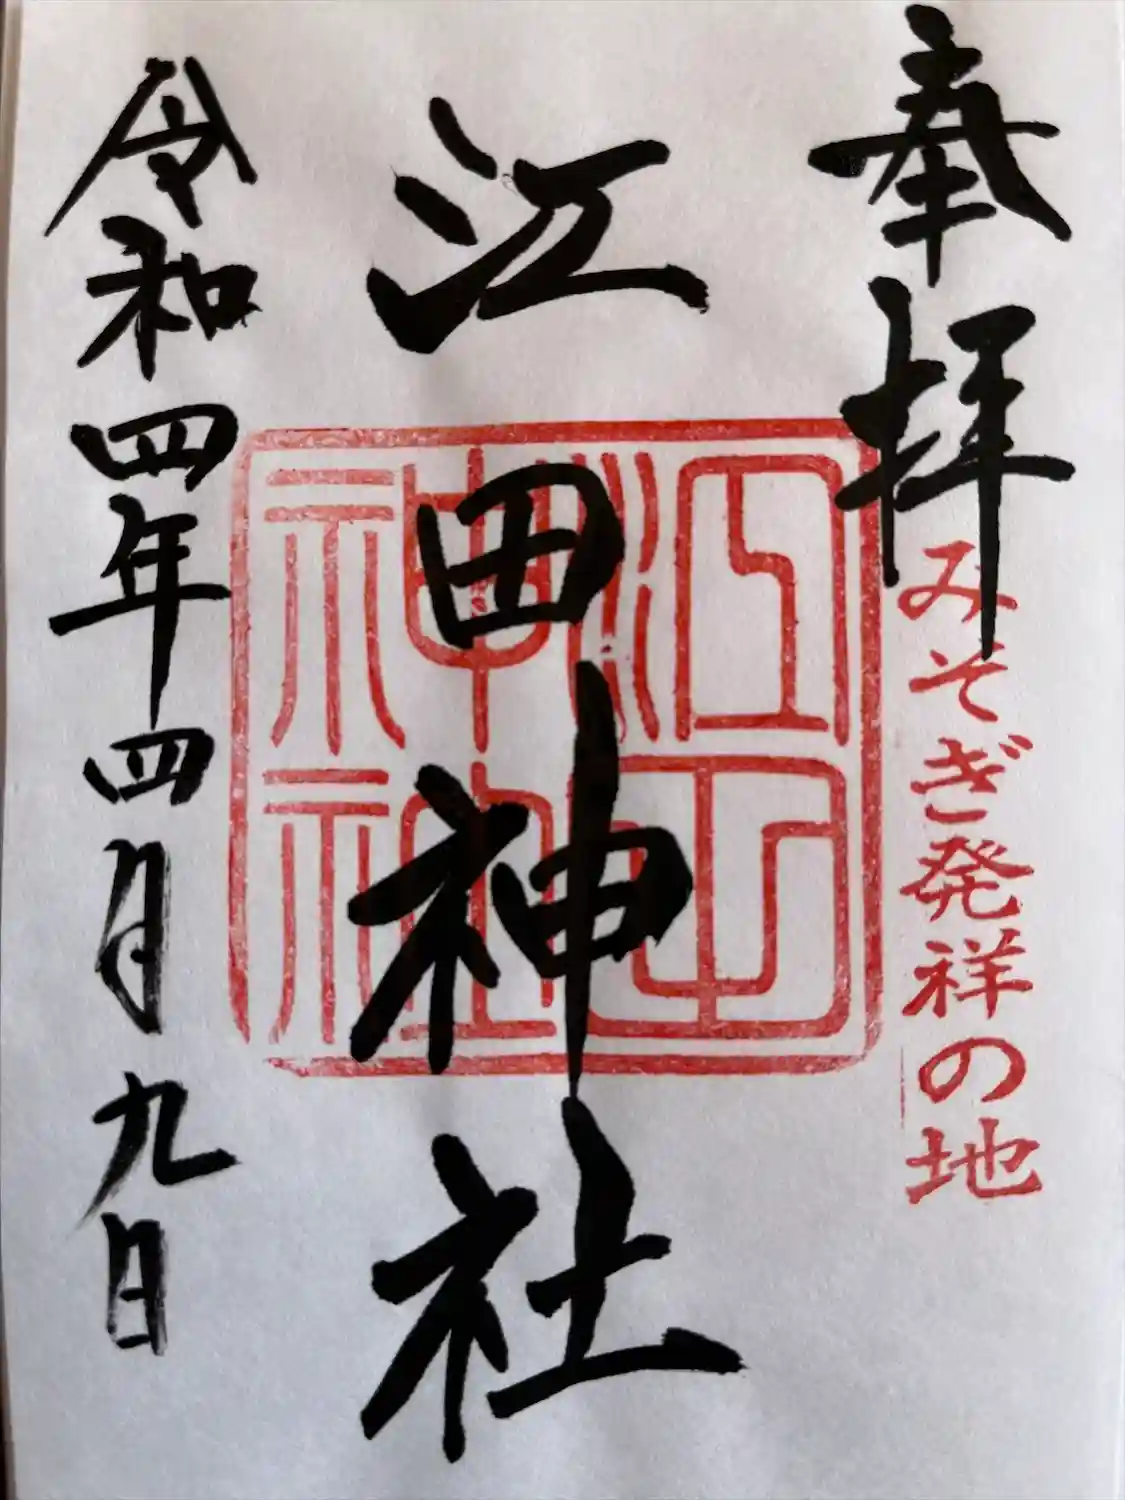 奉拝
みそぎ発祥の地
江田神社
江田神社
令和四年四月九日